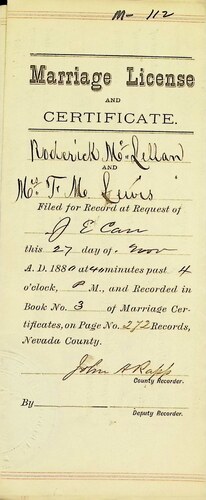 M - 112
Marriage License
AND
CERTIFICATE.
Roderick McLellan
AND
F. M. Lewis
Filed for Record at Request of
J E Carr
this 27 day of Nov
A. D. 1880 at 40 minutes past 4
o'clock, P M., and Recorded in
Book No. 3 of Marriage Cer-
tificates, on Page No. 272 Records,
Nevada County.
John A Rapp
County Recorder.
By
Deputy Recorder.